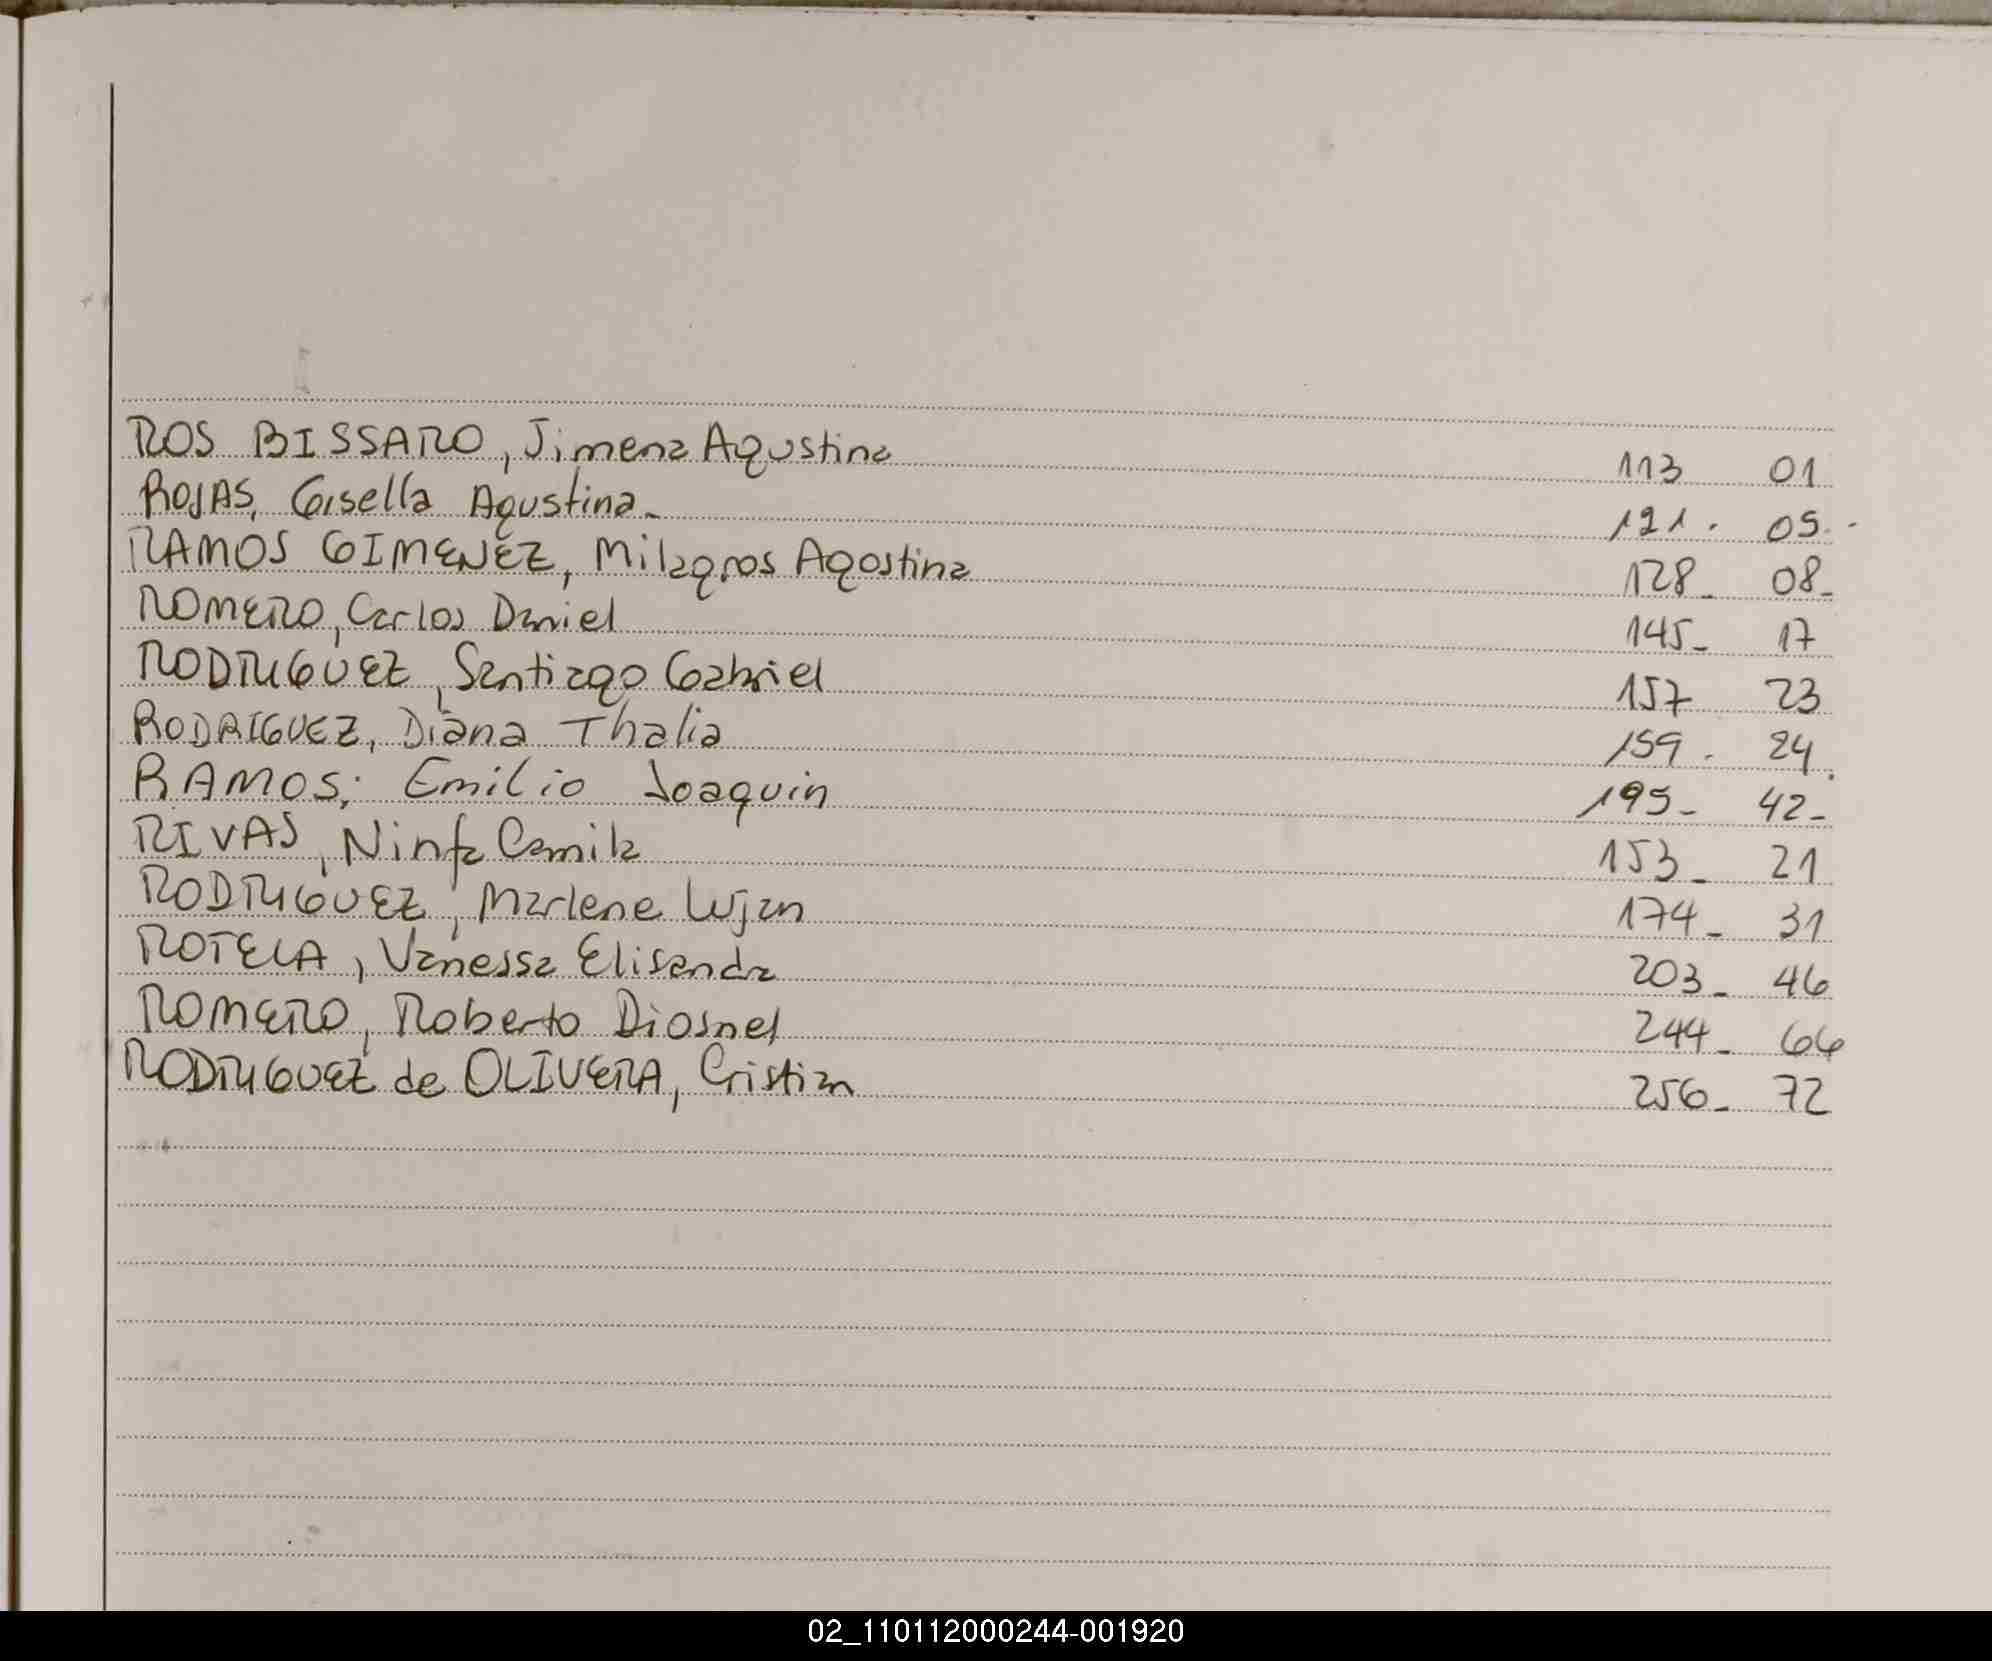 ROS BISSARO, Jimena Agustina 113 01
ROJAS, Gisella Agustina. 121. 05.
RAMOS GIMENEZ, Milagros Agostina 128_ 08_
ROMERO, Carlos Daniel 145_ 17
RODRIGUEZ, Santiago Gabriel 157 23
RODRIGUEZ, Diana Thalia 159. 24.
RAMOS; Emilio Joaquin 195_ 42_
RIVAS, Ninfa Camila 153_ 21
RODRIGUEZ, Marlene Lujan 174_ 31
ROTELA, Vanessa Elisanda 203_ 46
ROMERO, Roberto Diosnel 244_ 66
RODRIGUEZ de OLIVERA, Cristian 256_ 72
02_110112000244-001920